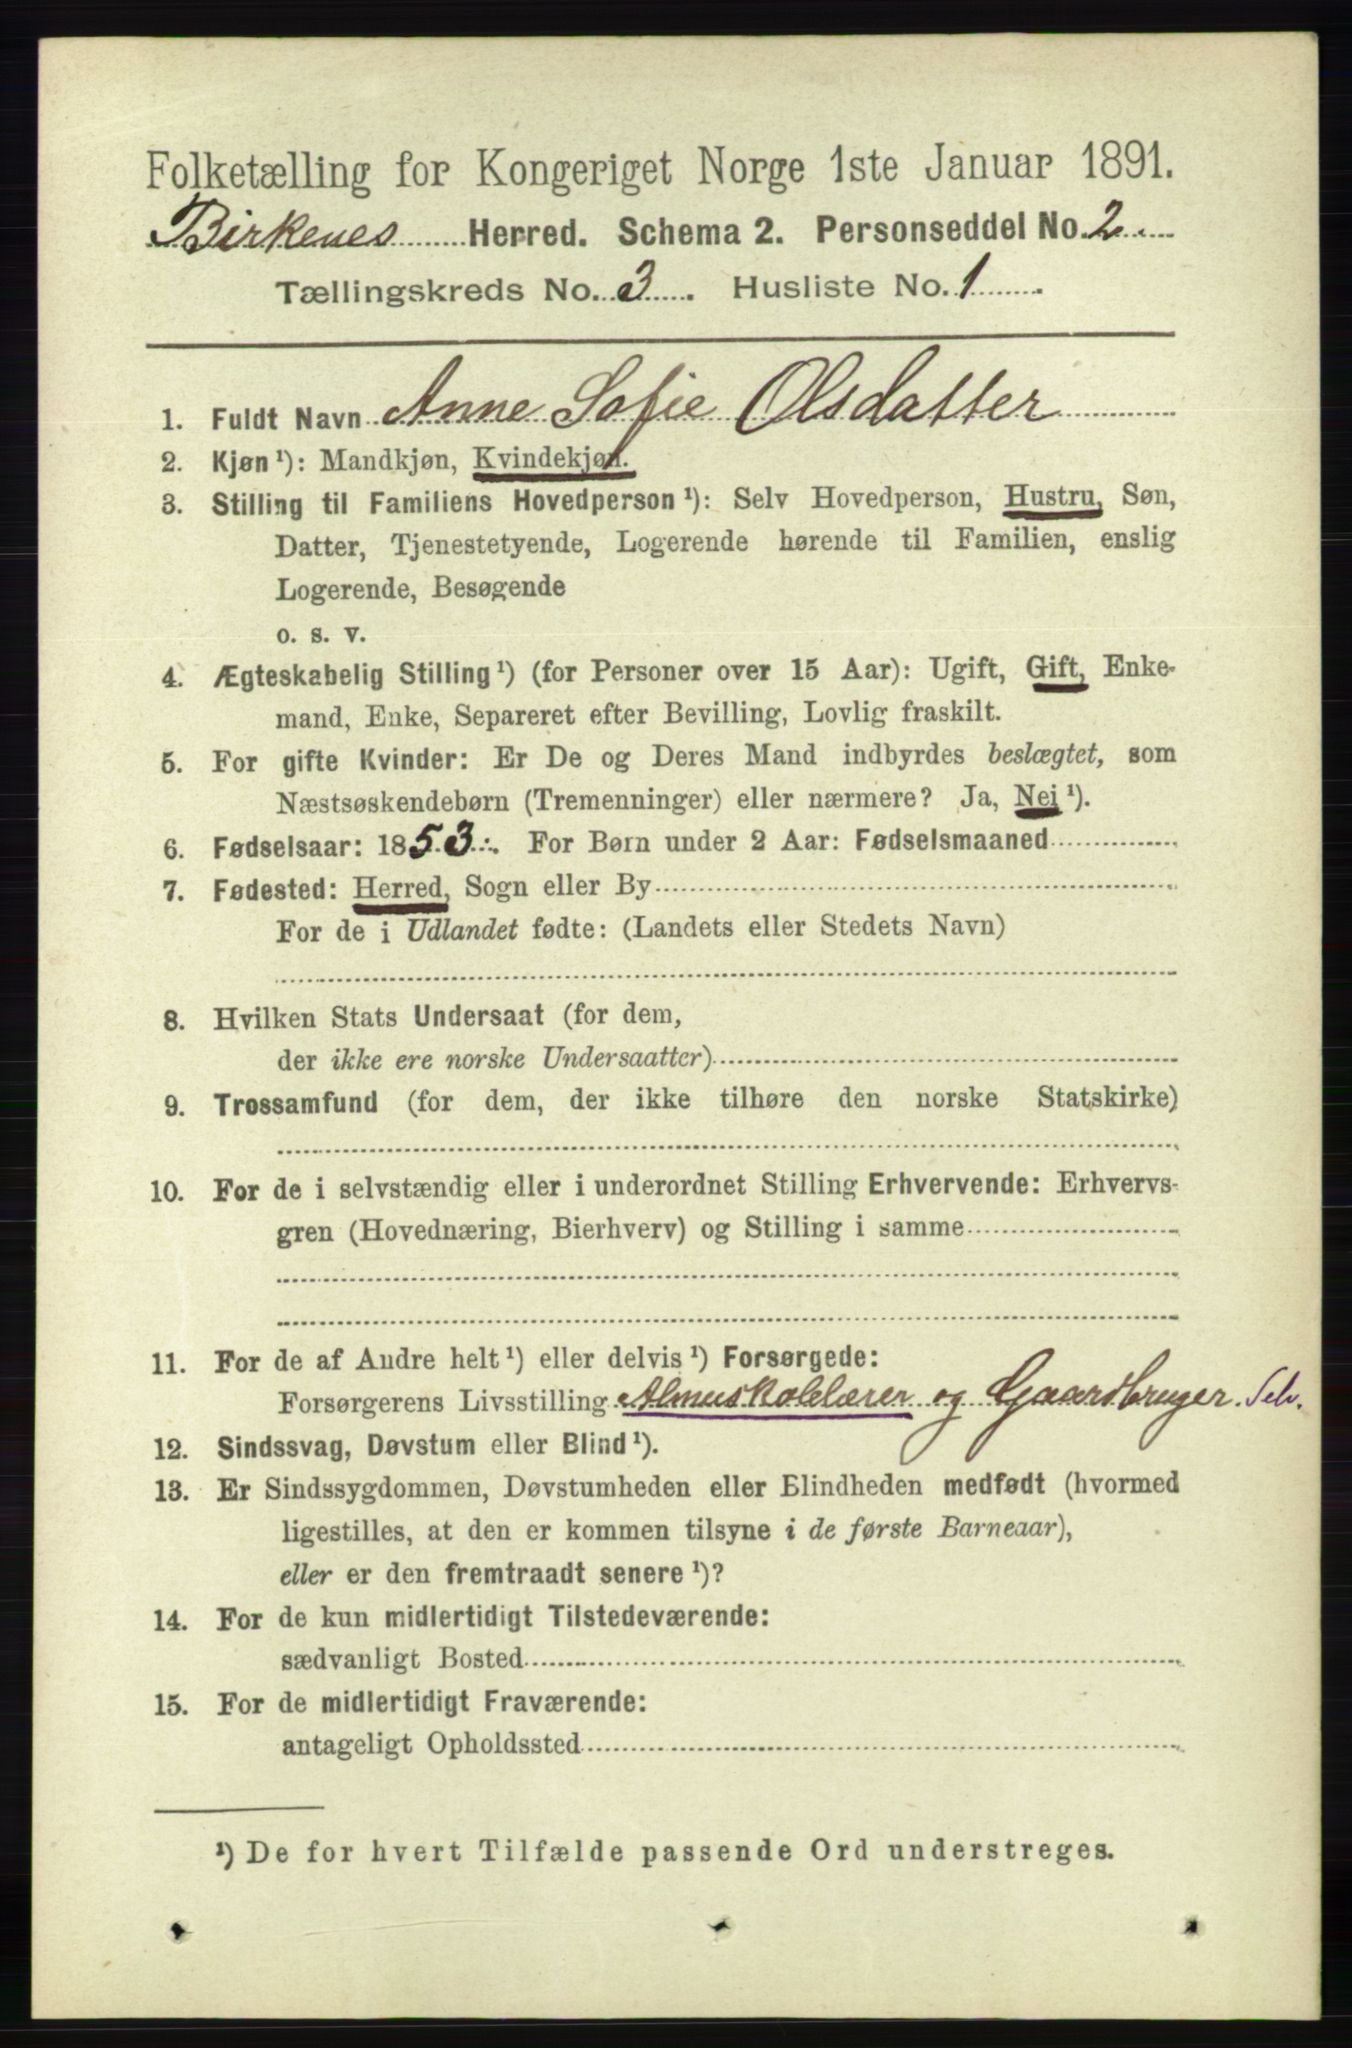 Folketælling for Kongeriget Norge 1ste Januar 1891.
Birkenes Herred. Schema 2. Personseddel No. 2
Tællingskreds No. 3. Husliste No. 1.
1. Fuldt Navn Anne Sofie Olsdatter
2. Kjøn¹): Mandkjøn, Kvindekjøn.
3. Stilling til Familiens Hovedperson¹): Selv Hovedperson, Hustru, Søn,
Datter, Tjenestetyende, Logerende hørende til Familien, enslig
Logerende, Besøgende
o. s. v.
4. Ægteskabelig Stilling¹) (for Personer over 15 Aar): Ugift, Gift, Enke-
mand, Enke, Separeret efter Bevilling, Lovlig fraskilt.
5. For gifte Kvinder: Er De og Deres Mand indbyrdes beslægtet, som
Næstsøskendebørn (Tremenninger) eller nærmere? Ja, Nei¹).
6. Fødselsaar: 1853. For Børn under 2 Aar: Fødselsmaaned
7. Fødested: Herred, Sogn eller By
For de i Udlandet fødte: (Landets eller Stedets Navn)
8. Hvilken Stats Undersaat (for dem,
der ikke ere norske Undersaatter)
9. Trossamfund (for dem, der ikke tilhøre den norske Statskirke)
10. For de i selvstændig eller i underordnet Stilling Erhvervende: Erhvervs-
gren (Hovednæring, Bierhverv) og Stilling i samme
11. For de af Andre helt¹) eller delvis¹) Forsørgede:
Forsørgerens Livsstilling Almuskolelærer og Gaardbruger. Selv.
12. Sindssvag, Døvstum eller Blind¹).
13. Er Sindssygdommen, Døvstumheden eller Blindheden medfødt (hvormed
ligestilles, at den er kommen tilsyne i de første Barneaar),
eller er den fremtraadt senere¹)?
14. For de kun midlertidigt Tilstedeværende:
sædvanligt Bosted
15. For de midlertidigt Fraværende:
antageligt Opholdssted
¹) De for hvert Tilfælde passende Ord understreges.